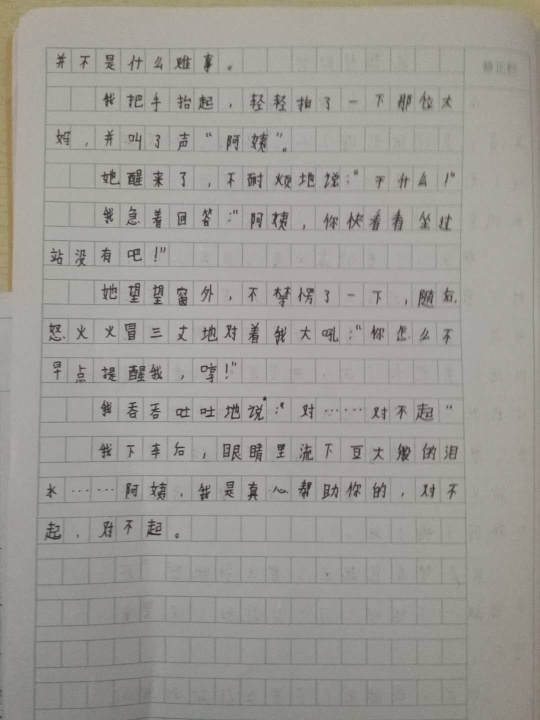 并不是什么难事。
我把手抬起，轻轻拍了一下那位大
妈，并叫了声“阿姨”。
她醒来了，不耐烦地说：“干什么！”
我急着回答：“阿姨，你快看看坐过
站没有吧！”
她望望窗外，不禁愣了一下，随后，
怒火火冒三丈地对着我大吼：“你怎么不
早点提醒我，哼！”
我吞吞吐吐地说：“对……对不起”
我下车后，眼睛里流下豆大般的泪
水……阿姨，我是真心帮助你的，对不
起，对不起。